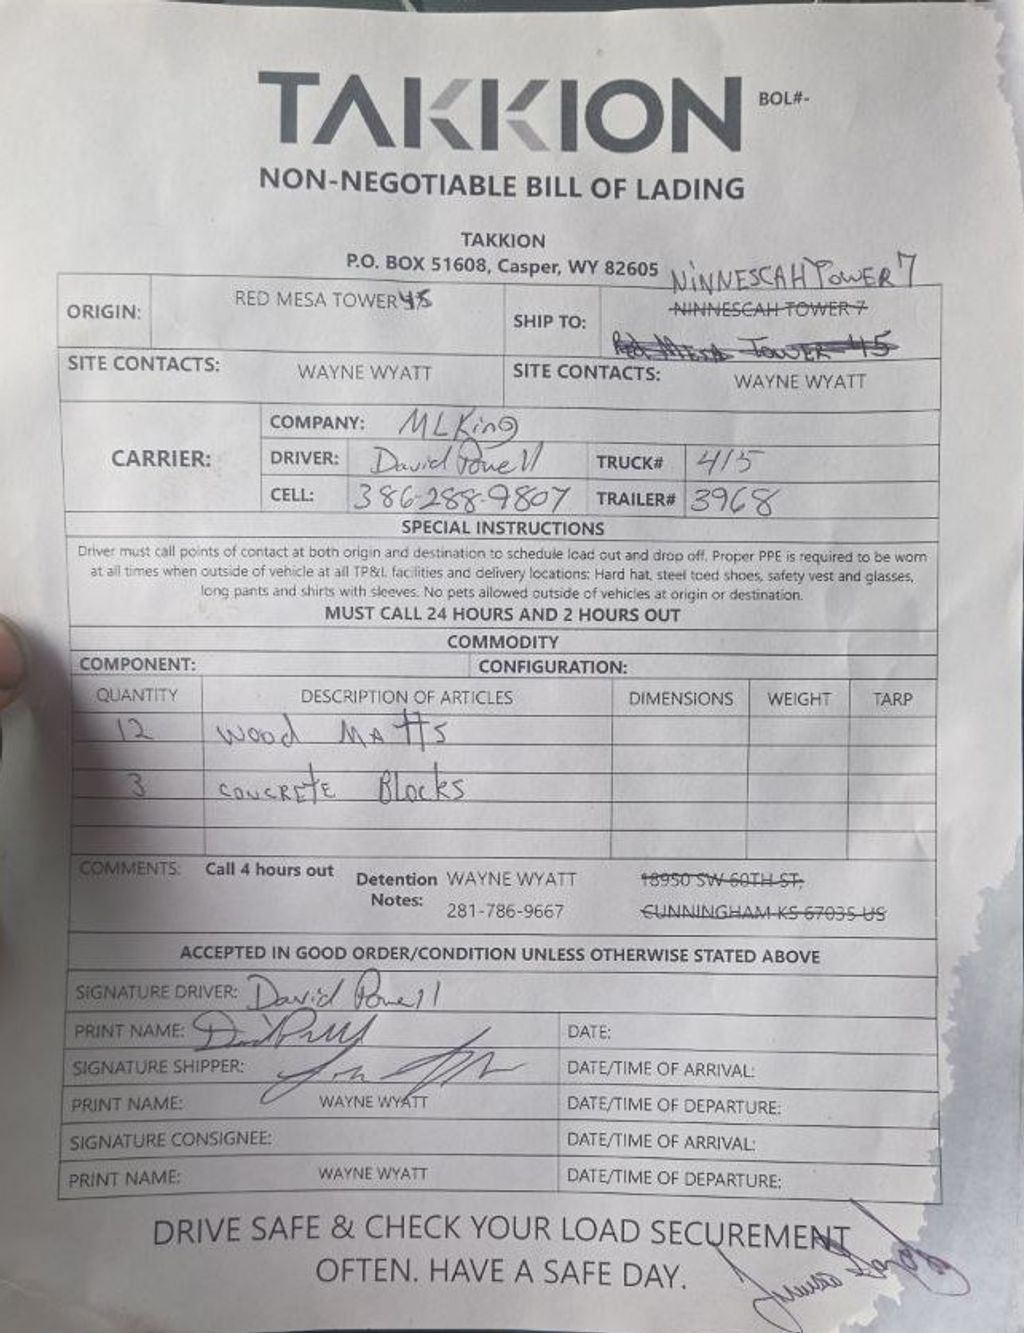 TAKKION
BOL#-
NON-NEGOTIABLE BILL OF LADING
TAKKION
P.O. BOX 51608, Casper, WY 82605
NINNESCAH TOWER 7
ORIGIN: RED MESA TOWER 45
SHIP TO: NINNESCAH TOWER 7
Red MESA TOWER 45
SITE CONTACTS: WAYNE WYATT
SITE CONTACTS: WAYNE WYATT
CARRIER:
COMPANY: MLKing
DRIVER: David Powell TRUCK# 415
CELL: 386-288-9807 TRAILER# 3968
SPECIAL INSTRUCTIONS
Driver must call points of contact at both origin and destination to schedule load out and drop off. Proper PPE is required to be worn
at all times when outside of vehicle at all TP&L facilities and delivery locations: Hard hat, steel toed shoes, safety vest and glasses,
long pants and shirts with sleeves. No pets allowed outside of vehicles at origin or destination.
MUST CALL 24 HOURS AND 2 HOURS OUT
COMMODITY
COMPONENT: CONFIGURATION:
QUANTITY DESCRIPTION OF ARTICLES DIMENSIONS WEIGHT TARP
12 Wood MATTS
3 CONCRETE Blocks
COMMENTS: Call 4 hours out
Detention Notes: WAYNE WYATT
281-786-9667
18950 SW 60TH ST,
CUNNINGHAM KS 67035 US
ACCEPTED IN GOOD ORDER/CONDITION UNLESS OTHERWISE STATED ABOVE
SIGNATURE DRIVER: David Powell
PRINT NAME: DATE:
SIGNATURE SHIPPER: DATE/TIME OF ARRIVAL:
PRINT NAME: WAYNE WYATT DATE/TIME OF DEPARTURE:
SIGNATURE CONSIGNEE: DATE/TIME OF ARRIVAL:
PRINT NAME: WAYNE WYATT DATE/TIME OF DEPARTURE:
DRIVE SAFE & CHECK YOUR LOAD SECUREMENT
OFTEN. HAVE A SAFE DAY.